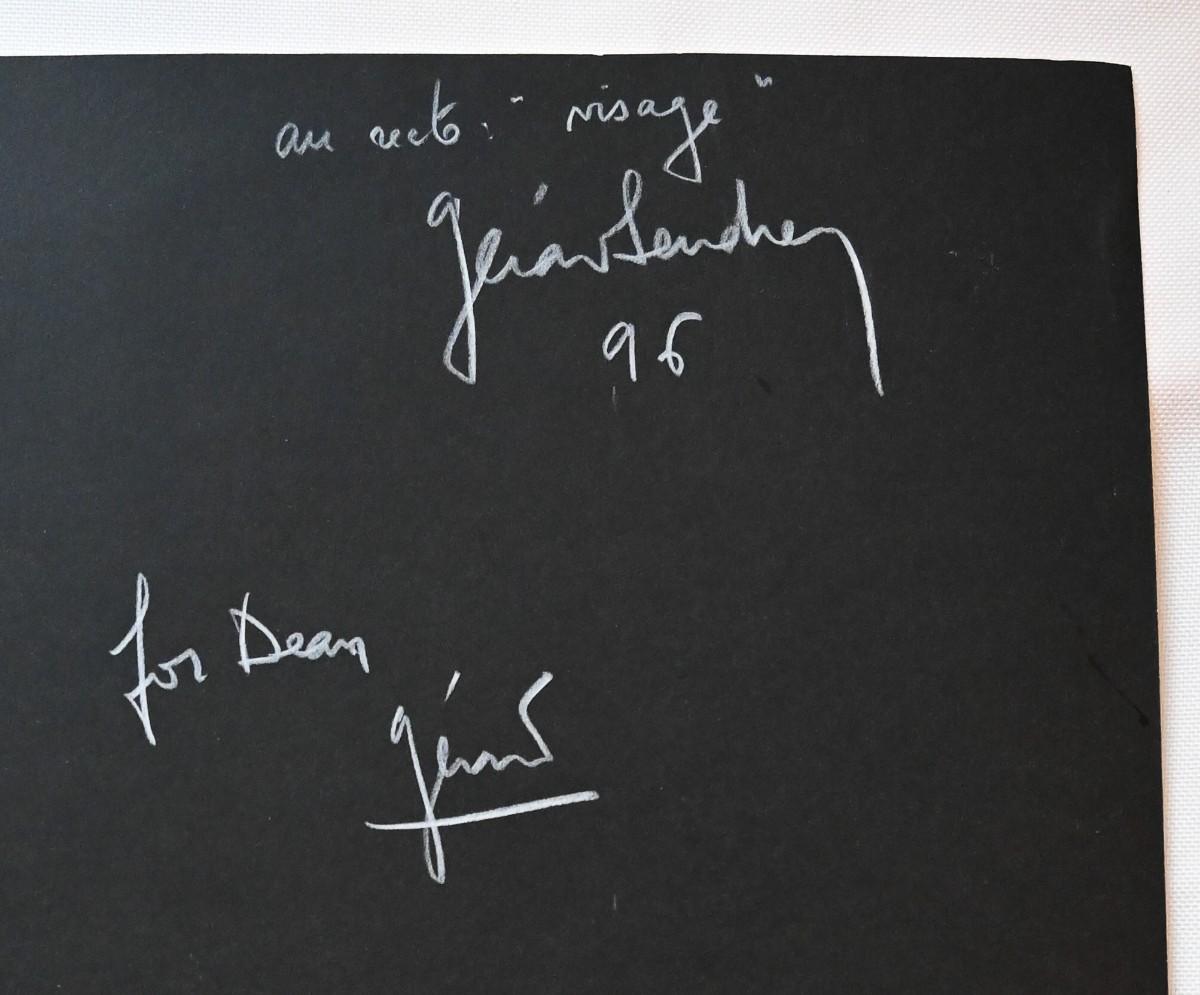 au recto : "visage"
Gérard Sendrey
96
for Dean
Gérard